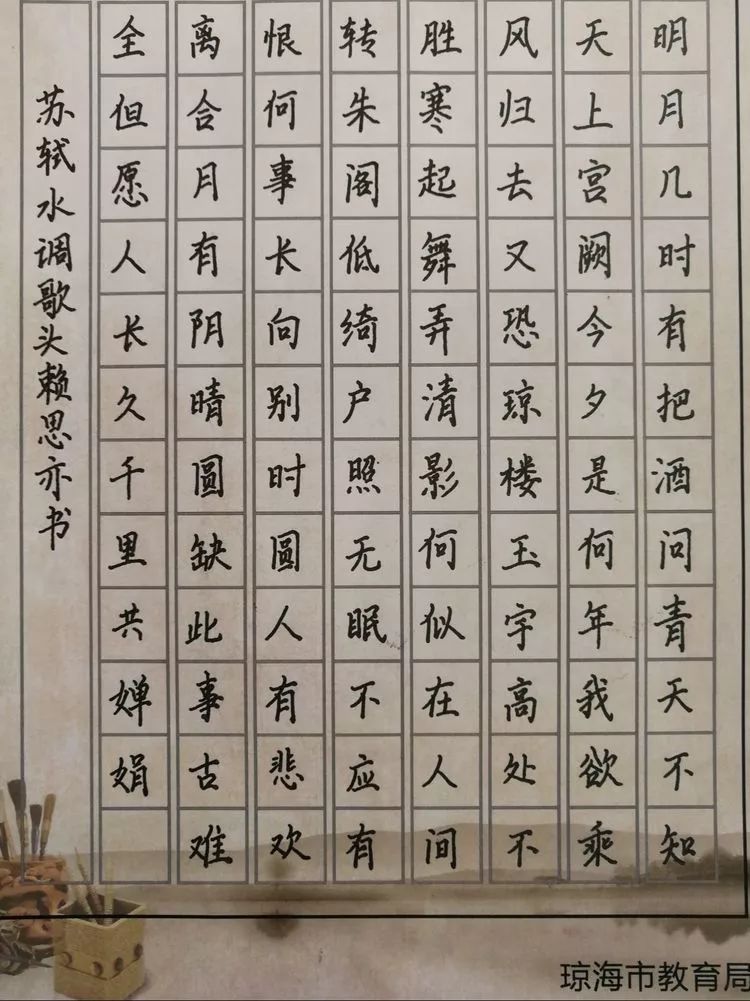 明月几时有把酒问青天不知
天上宫阙今夕是何年我欲乘
风归去又恐琼楼玉宇高处不
胜寒起舞弄清影何似在人间
转朱阁低绮户照无眠不应有
恨何事长向别时圆人有悲欢
离合月有阴晴圆缺此事古难
全但愿人长久千里共婵娟
苏轼水调歌头赖思亦书
琼海市教育局